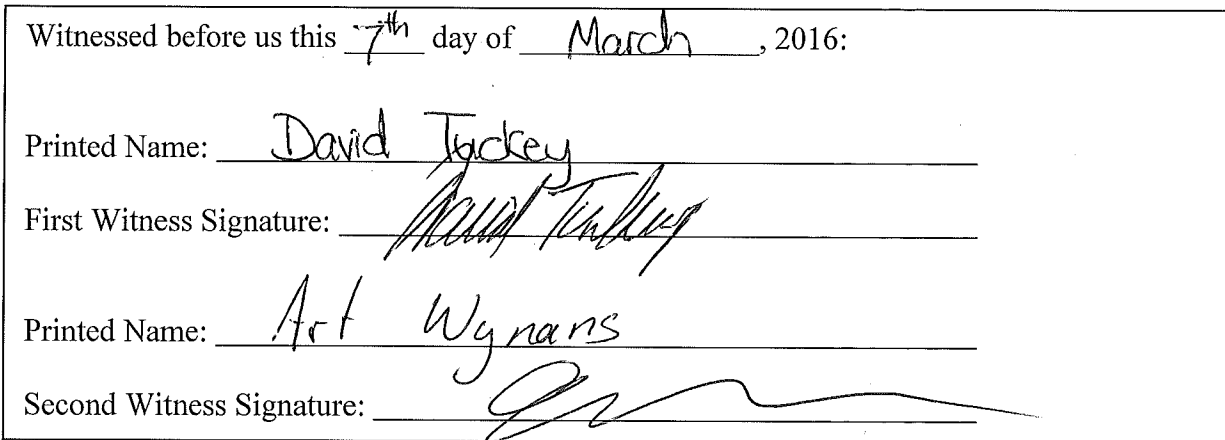 Witnessed before us this 7th day of March, 2016:
Printed Name: David Tuckey
First Witness Signature: David Tuckey
Printed Name: Art Wynans
Second Witness Signature: